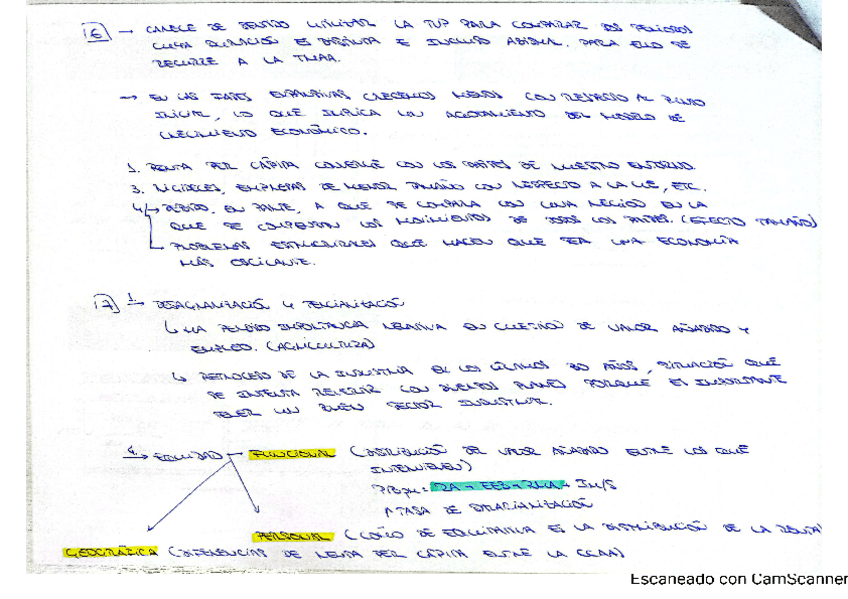 16 → CARECE DE SENTIDO UTILIZAR LA TVP PARA COMPARAR DOS PERIODOS
CUYA DURACIÓN ES DISTINTA E INCLUSO ABISMAL. PARA ELLO SE
RECURRE A LA TMAA.
→ EN LAS FASES EXPANSIVAS CRECEMOS MENOS CON RESPECTO AL PUNTO
INICIAL, LO QUE IMPLICA UN AGOTAMIENTO DEL MODELO DE
CRECIMIENTO ECONÓMICO.
1. RENTA PER CÁPITA CONVERGE CON LOS PAÍSES DE NUESTRO ENTORNO.
3. RIGIDECES, EMPRESAS DE MENOR TAMAÑO CON RESPECTO A LA UE, ETC.
4. → DEBIDO, EN PARTE, A QUE SE COMPARA CON UNA REGIÓN EN LA
QUE SE COMPENSAN LOS MOVIMIENTOS DE TODOS LOS PAÍSES. (EFECTO TAMAÑO)
PROBLEMAS ESTRUCTURALES QUE HACEN QUE SEA UNA ECONOMÍA
MÁS OSCILANTE.
17 1. → DESAGRARIZACIÓN Y TERCIARIZACIÓN
↳ HA PERDIDO IMPORTANCIA RELATIVA EN CUESTIÓN DE VALOR AÑADIDO Y
EMPLEO. (AGRICULTURA)
↳ RETROCESO DE LA INDUSTRIA EN LOS ÚLTIMOS 30 AÑOS, SITUACIÓN QUE
SE INTENTA REVERTIR CON BUENOS PLANES PORQUE ES IMPORTANTE
TENER UN BUEN SECTOR INDUSTRIAL.
4. → EQUIDAD → FUNCIONAL (DISTRIBUCIÓN DEL VALOR AÑADIDO ENTRE LOS QUE
INTERVIENEN)
PIBpm = RA + EEB + RMA + Im/S
TASA DE SALARIZACIÓN
PERSONAL (CÓMO DE EQUITATIVA ES LA DISTRIBUCIÓN DE LA RENTA)
GEOGRÁFICA (DIFERENCIAS DE RENTA PER CÁPITA ENTRE LA CCAA)
Escaneado con CamScanner